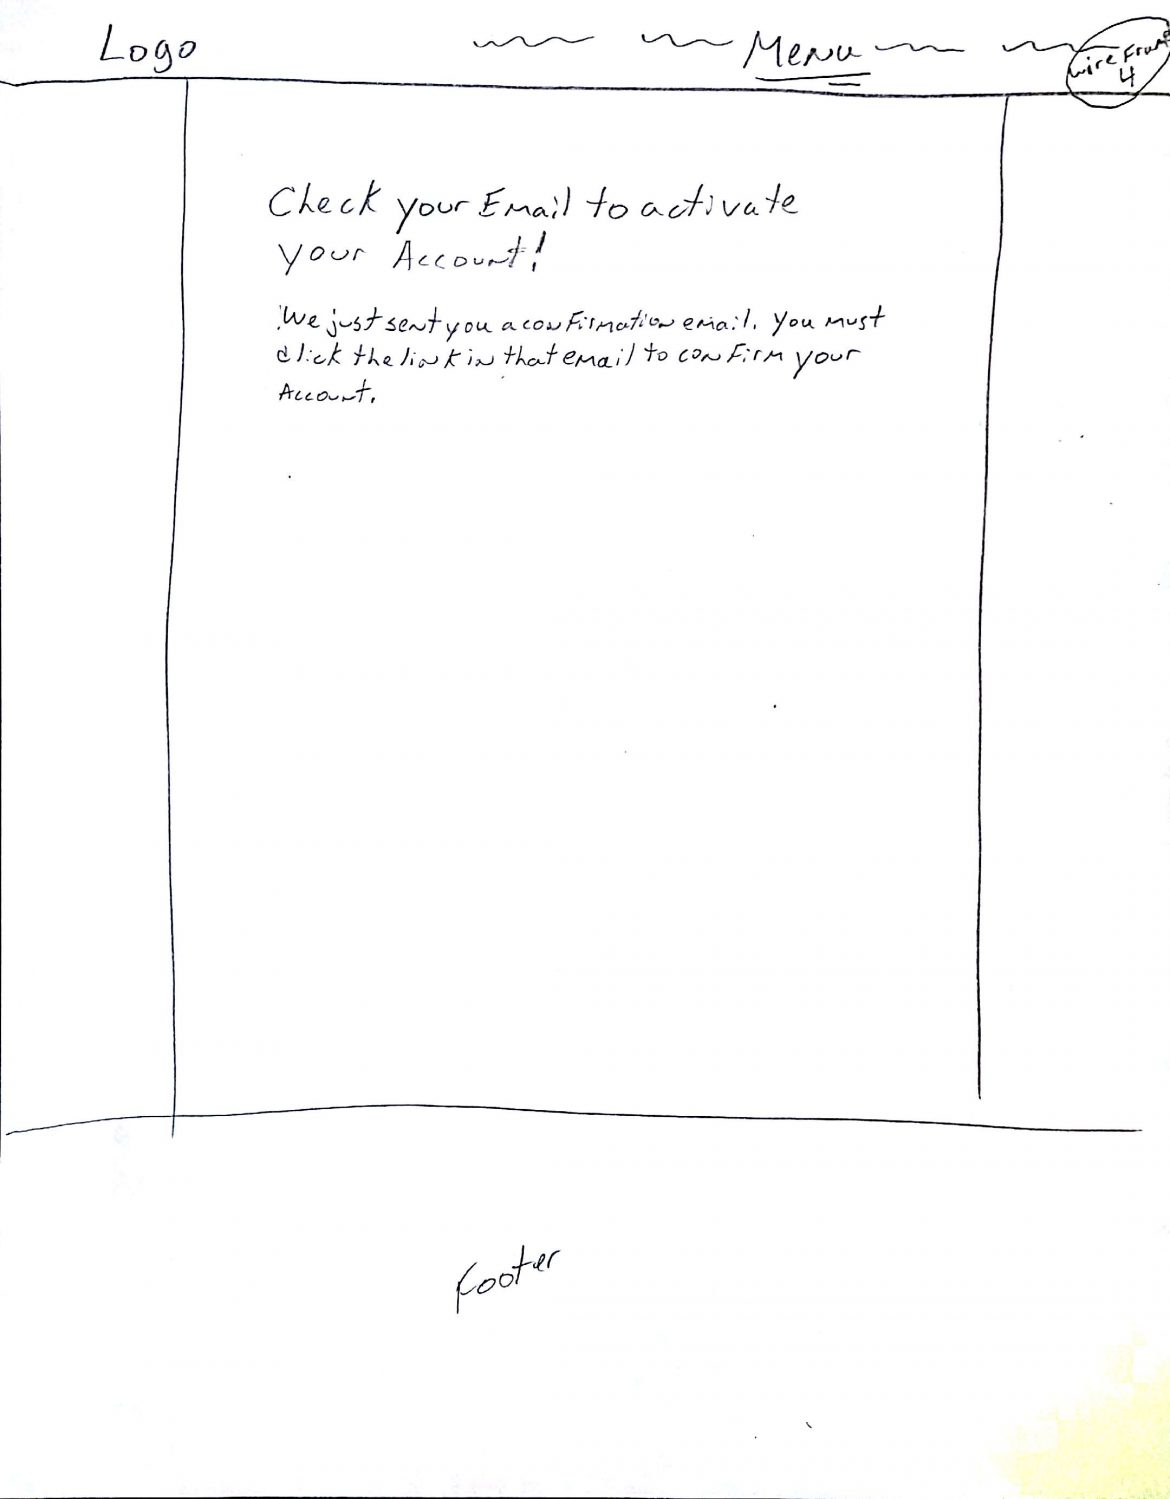 Logo
Menu
wireframe
4
Check your Email to activate
your Account!
We just sent you a confirmation email. You must
click the link in that email to confirm your
Account.
Footer